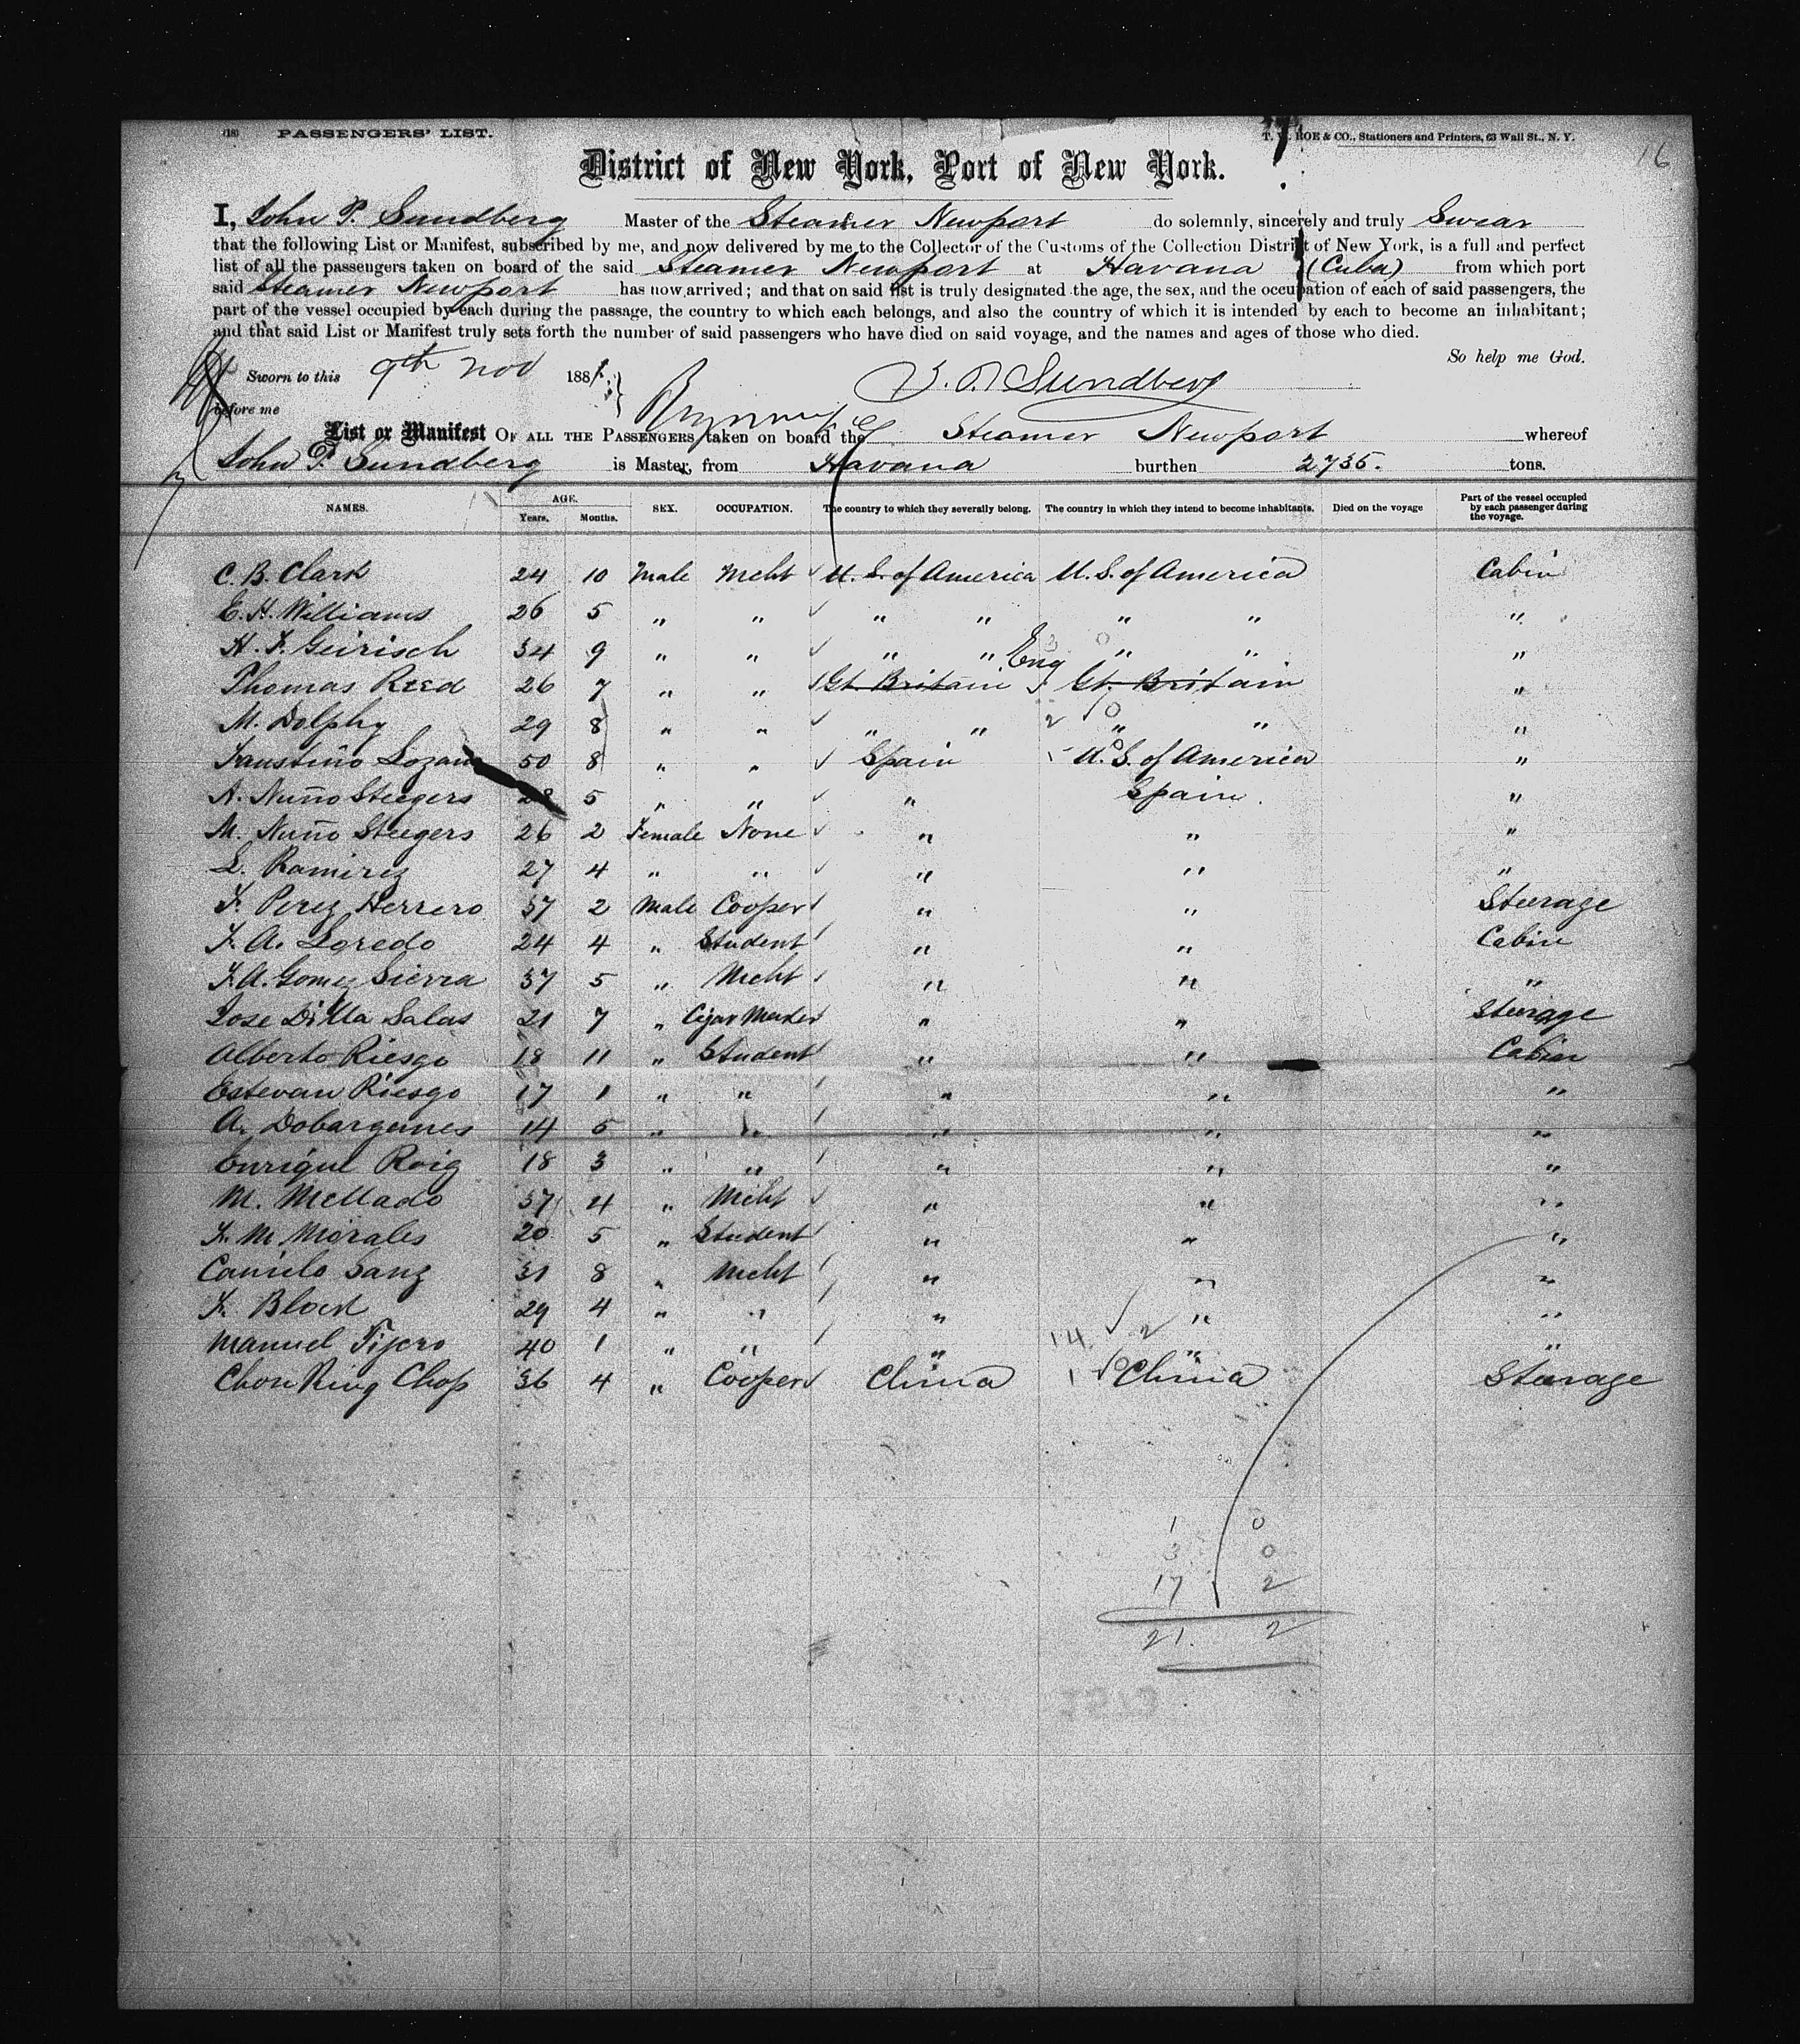 (18) PASSENGERS' LIST. T. W. ROE & CO., Stationers and Printers, 63 Wall St., N. Y.
16
District of New York, Port of New York.
I, John P. Sundberg Master of the Steamer Newport do solemnly, sincerely and truly Swear
that the following List or Manifest, subscribed by me, and now delivered by me to the Collector of the Customs of the Collection District of New York, is a full and perfect
list of all the passengers taken on board of the said Steamer Newport at Havana (Cuba) from which port
said Steamer Newport has now arrived; and that on said list is truly designated the age, the sex, and the occupation of each of said passengers, the
part of the vessel occupied by each during the passage, the country to which each belongs, and also the country of which it is intended by each to become an inhabitant;
and that said List or Manifest truly sets forth the number of said passengers who have died on said voyage, and the names and ages of those who died.
So help me God.
Sworn to this 9th Nov 188
J. P. Sundberg
before me
List or Manifest OF ALL THE PASSENGERS taken on board the Steamer Newport whereof
John P. Sundberg is Master, from Havana burthen 2735. tons.
NAMES. AGE. Years. Months. SEX. OCCUPATION. The country to which they severally belong. The country in which they intend to become inhabitants. Died on the voyage Part of the vessel occupied by each passenger during the voyage.
C. B. Clark 24 10 Male Mcht U. S. of America U. S. of America Cabin
E. H. Williams 26 5 " " " " " " "
H. F. Geirisch 34 9 " " " " " " "
Eng
Thomas Reed 26 7 " " Gt. Britain Gt. Britain "
M. Dolphy 29 8 " " " " " " "
Faustino Lozano 50 8 " " Spain U. S. of America "
A. Nuño Steegers 28 5 " " " Spain "
M. Nuño Steegers 26 2 Female None " " "
L. Ramirez 27 4 " " " " "
F. Perez Herrero 37 2 Male Cooper " " Steerage
F. A. Loredo 24 4 " Student " " Cabin
F. A. Gomez Sierra 37 5 " Mcht " " "
Jose Dilla Salas 21 7 " Cigar Maker " " Steerage
Alberto Riesgo 18 11 " Student " " Cabin
Estevan Riesgo 17 1 " " " " "
A. Dobarganes 14 5 " " " " "
Enrique Roig 18 3 " " " " "
M. Mellado 37 4 " Mcht " " "
F. M. Morales 20 5 " Student " " "
Camilo Sanz 31 8 " Mcht " " "
F. Block 29 4 " " " " "
Manuel Tijero 40 1 " " " " "
Chon Ning Chop 36 4 " Cooper China China Steerage
1 0
3 0
17 2
21. 2